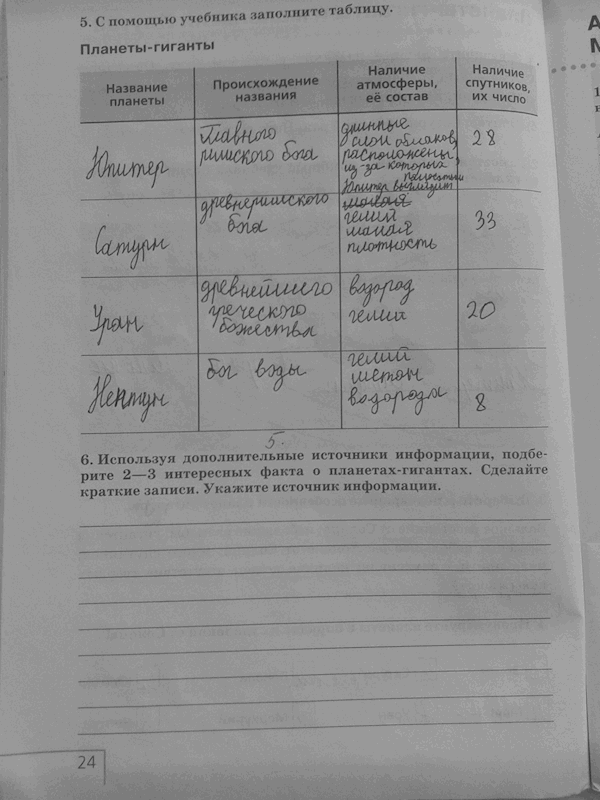 5. С помощью учебника заполните таблицу.
Планеты-гиганты
Название планеты
Происхождение названия
Наличие атмосферы, её состав
Наличие спутников, их число
Юпитер
Главного
римского бога
длинные
слои облаков,
расположены
из-за которых
Юпитер выглядит
полосатым
28
Сатурн
древнеримского
бога
гелий
малая
плотность
33
Уран
древнейшего
греческого
божества
водород
гелий
20
Нептун
бог воды
гелий
метан
водорода
8
5.
6. Используя дополнительные источники информации, подбе-
рите 2—3 интересных факта о планетах-гигантах. Сделайте
краткие записи. Укажите источник информации.
24